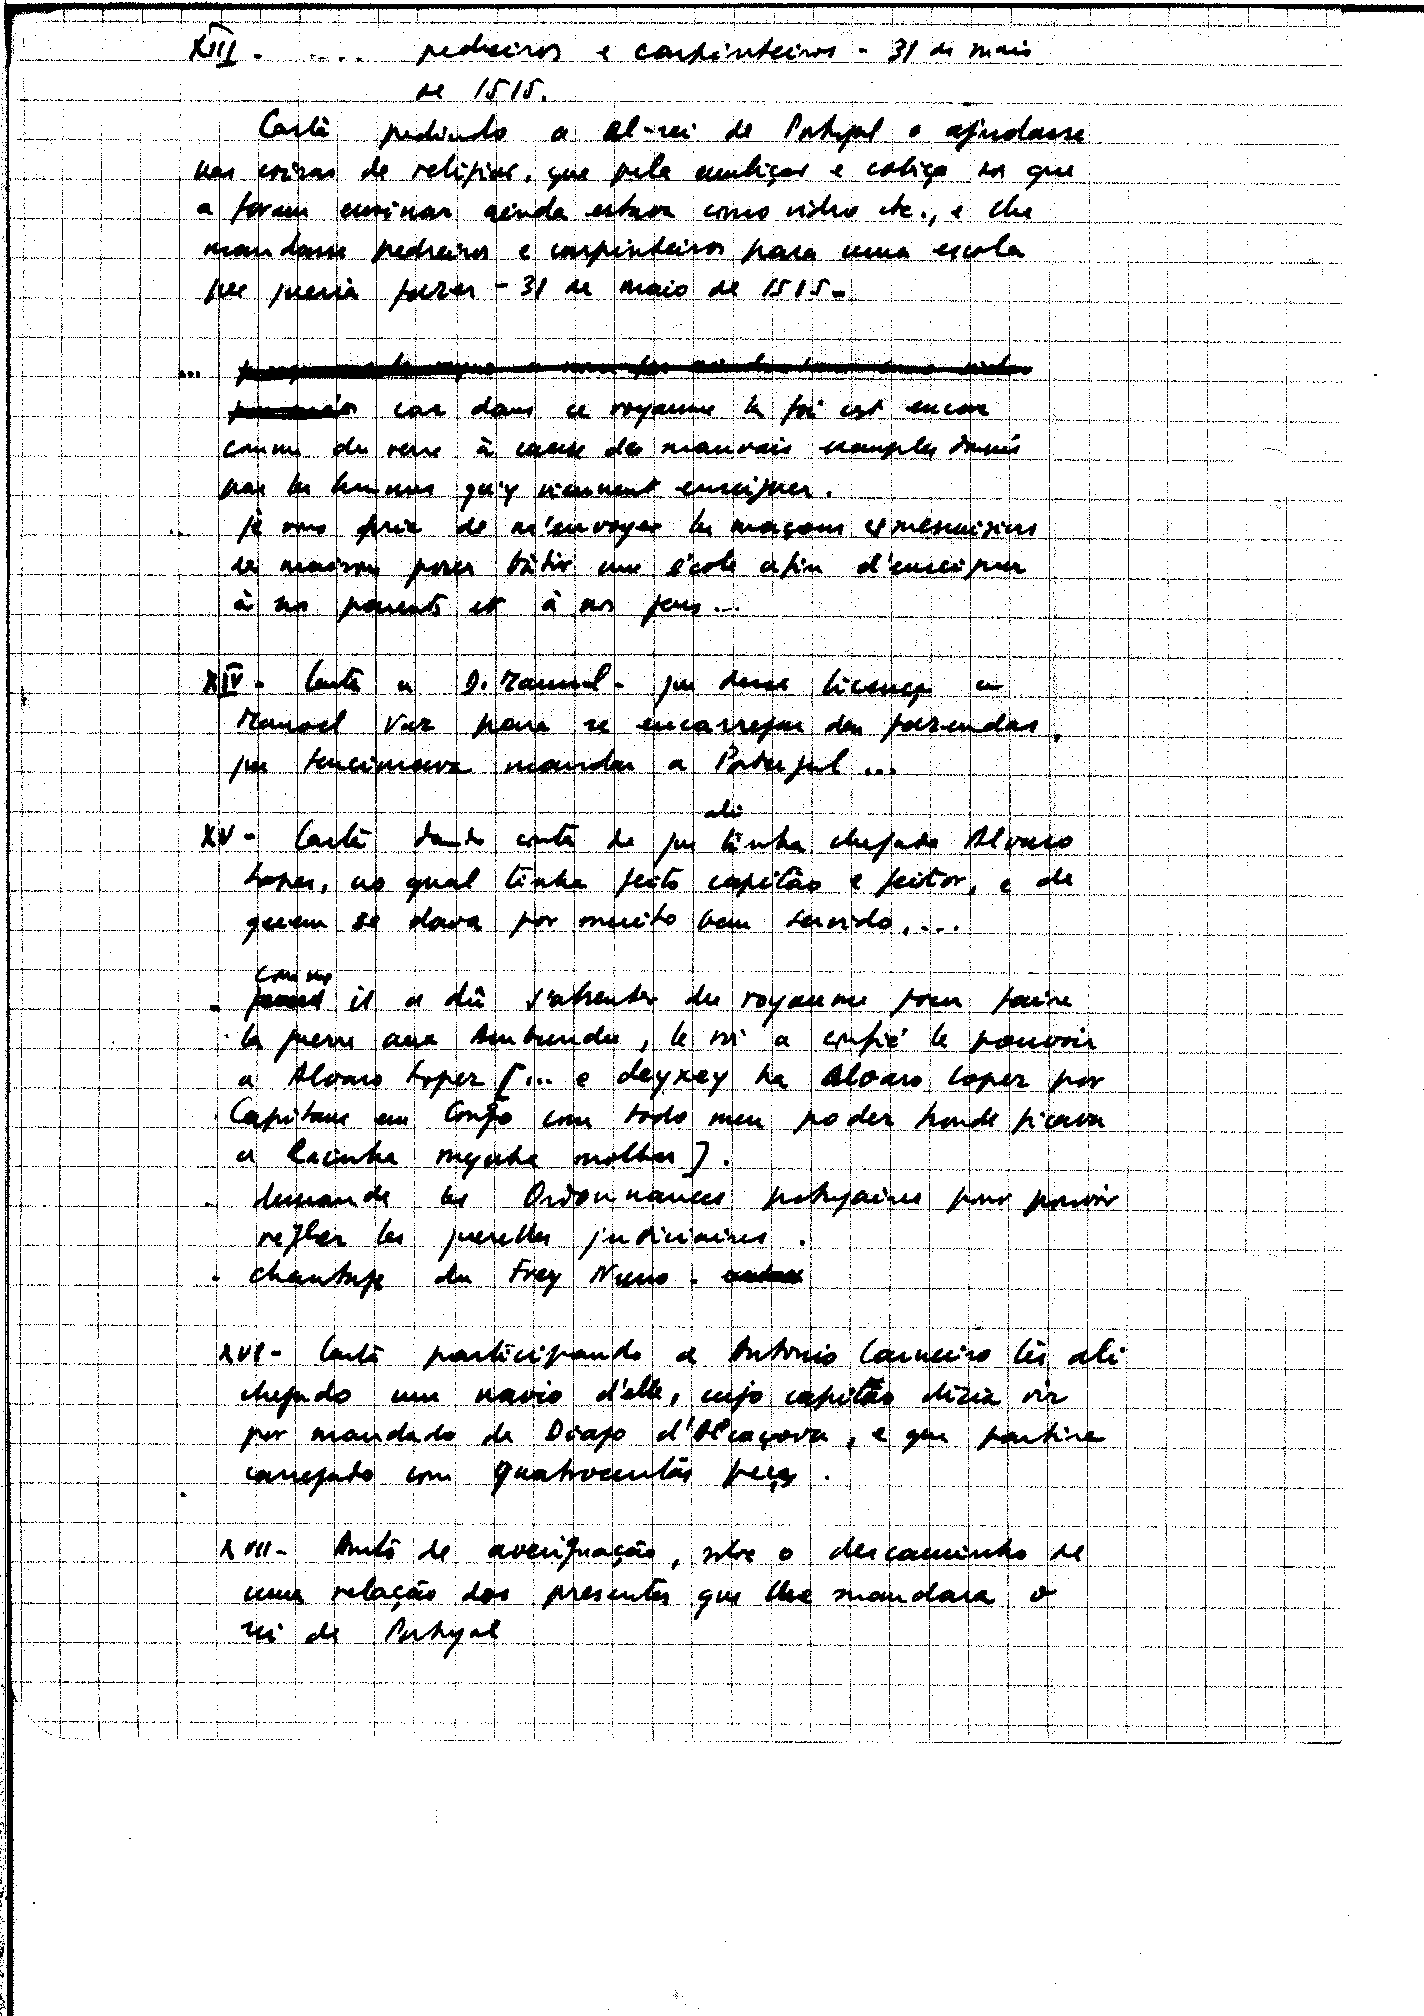 XIII - .... pedreiros e carpinteiros - 31 de maio
de 1515.
Carta pedindo a el-rei de Portugal o ajudasse
nas coisas de religião, que pela cubiça e cobiça dos que
a foram ensinar ainda estava como vidro etc., e lhe
mandasse pedreiros e carpinteiros para uma escola
que queria fazer - 31 de maio de 1515.
... car dans ce royaume la foi est encore
comme du verre à cause des mauvais exemples donnés
par les hommes qui y viennent enseigner.
.. je vous prie de m'envoyer les maçons et menuisiers
pour bâtir une école afin d'enseigner
à nos parents et à nos gens...
XIV - Carta a D. Manuel - que desse licença a
Manoel Vaz para se encarregar das fazendas,
que tencionava mandar a Portugal ...
XV - Carta dando conta de que ali tinha chegado Alvaro
Lopes, ao qual tinha feito capitão e feitor, e de
quem se dava por muito bem servido, ...
- comme il a dû s'absenter du royaume pour faire
la guerre aux Ambundu, le roi a confié le pouvoir
a Alvaro Lopez [... e deyxey ha Alvaro Lopez por
Capitam em Congo com todo meu poder honde ficava
a Rainha mynha molher].
- demande les Ordonnances portugaises pour pouvoir
régler les querelles judiciaires.
- chantage du Frey Nuno.
XVI - Carta participando a Antonio Carneiro ter ali
chegado um navio d'elle, cujo capitão dizia vir
por mandado de Diogo d'Alcaçova, e que partira
carregado com quatrocentas peças.
XVII - Auto de averiguação, sobre o descaminho de
uma relação dos presentes que lhe mandara o
rei de Portugal